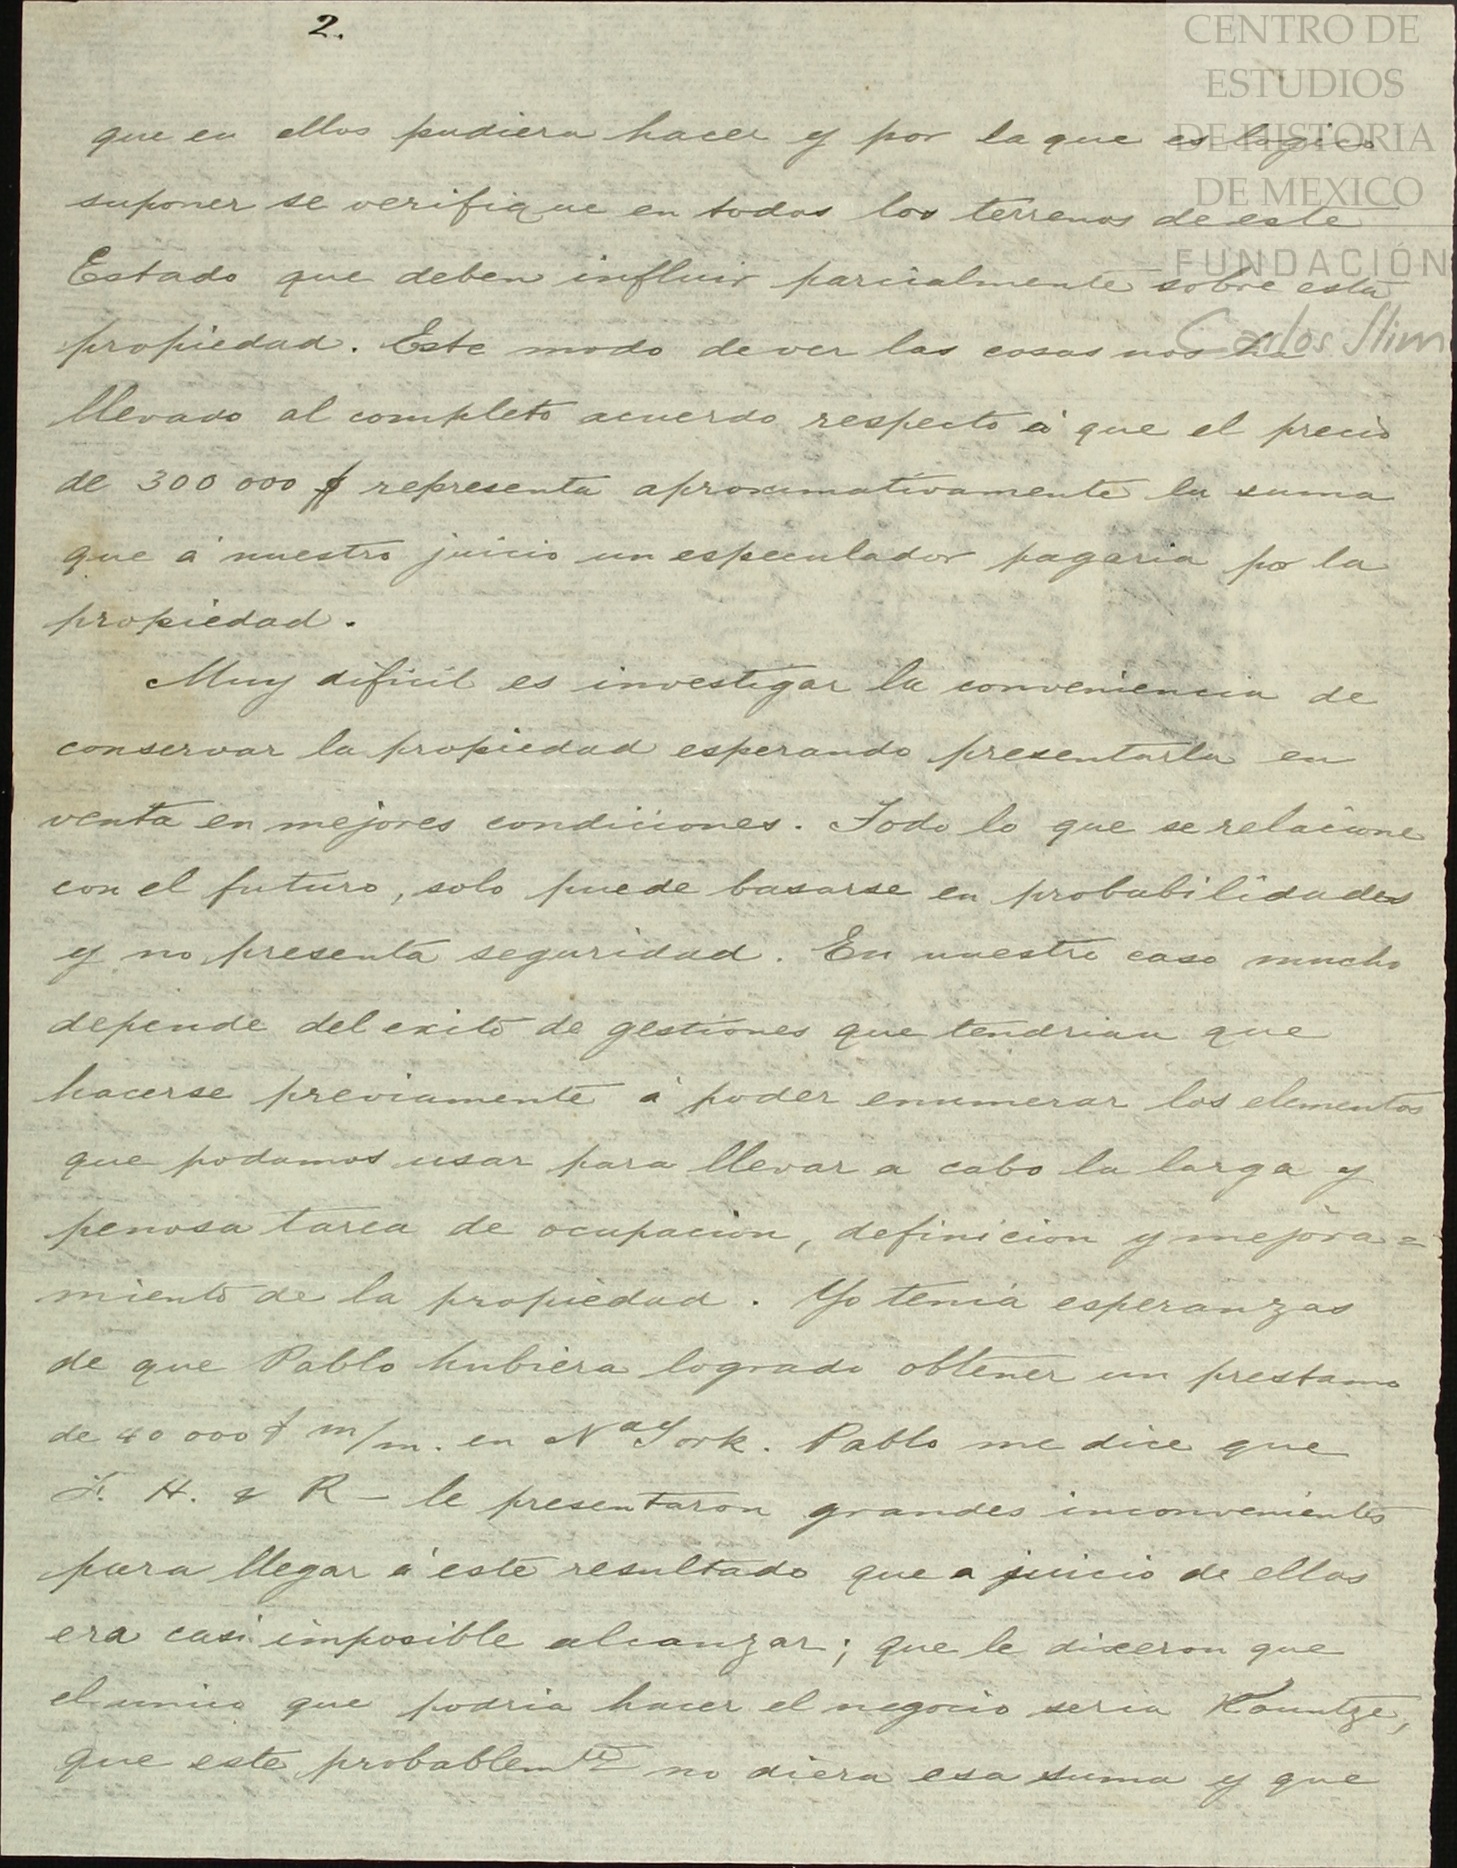 2.
CENTRO DE
ESTUDIOS
DE HISTORIA
DE MEXICO
FUNDACIÓN
Carlos Slim
que en ellos pudiera hacer y por la que es logico
suponer se verifique en todos los terrenos de este
Estado que deben influir parcialmente sobre esta
propiedad. Este modo de ver las cosas nos ha
llevado al completo acuerdo respecto á que el precio
de 300 000 $ representa aproximativamente la suma
que á nuestro juicio un especulador pagaria por la
propiedad.
Muy dificil es investigar la conveniencia de
conservar la propiedad esperando presentarla en
venta en mejores condiciones. Todo lo que se relacione
con el futuro, solo puede basarse en probabilidades
y no presenta seguridad. En nuestro caso mucho
depende del exito de gestiones que tendrian que
hacerse previamente á poder enumerar los elementos
que podamos usar para llevar a cabo la larga y
penosa tarea de ocupacion, definicion y mejora=
miento de la propiedad. Yo tenia esperanzas
de que Pablo hubiera logrado obtener un prestamo
de 40 000 $ m/m. en Na York. Pablo me dice que
F. H. & R — le presentaron grandes inconvenientes
para llegar á este resultado que a juicio de ellos
era casi imposible alcanzar; que le dixeron que
el unico que podria hacer el negocio seria Kountze,
que este probablemte no diera esa suma y que